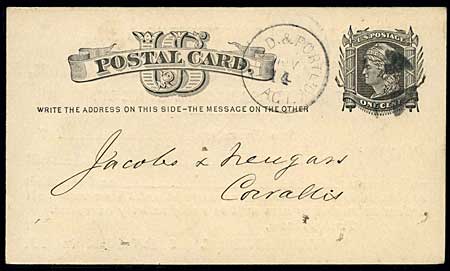 U S
POSTAL CARD.
WRITE THE ADDRESS ON THIS SIDE—THE MESSAGE ON THE OTHER
D. & PORTL
4
AGT
U.S. POSTAGE
ONE CENT
Jacobs & Neugass
Corvallis